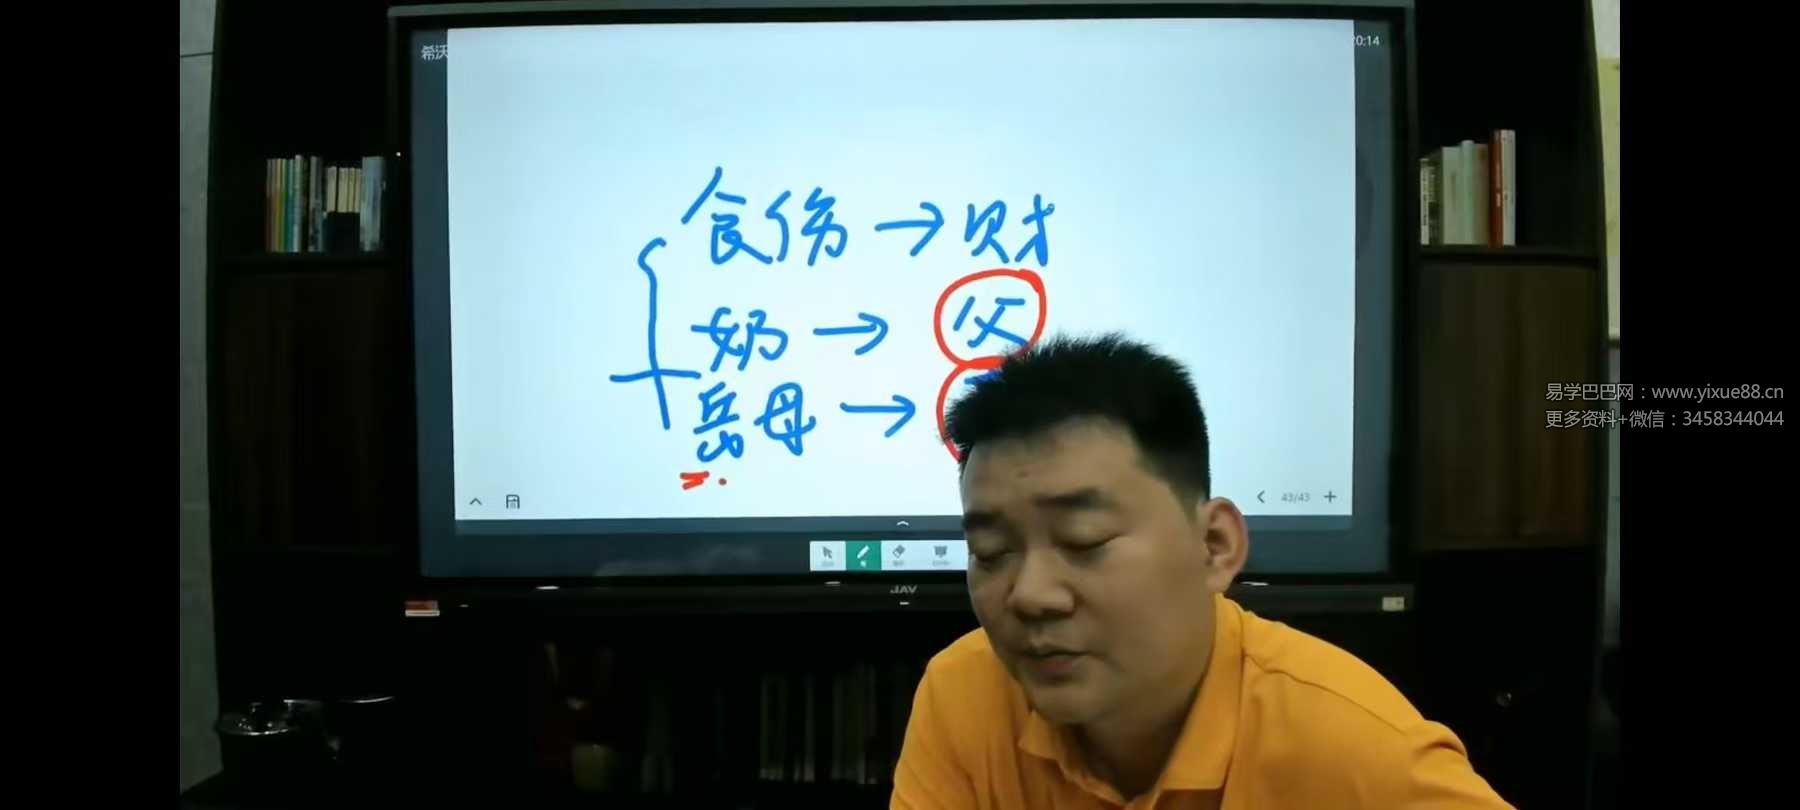 希沃
20:14
食伤→财
奶→父
岳母→
43/43
JAV
易学巴巴网：www.yixue88.cn
更多资料+微信：3458344044